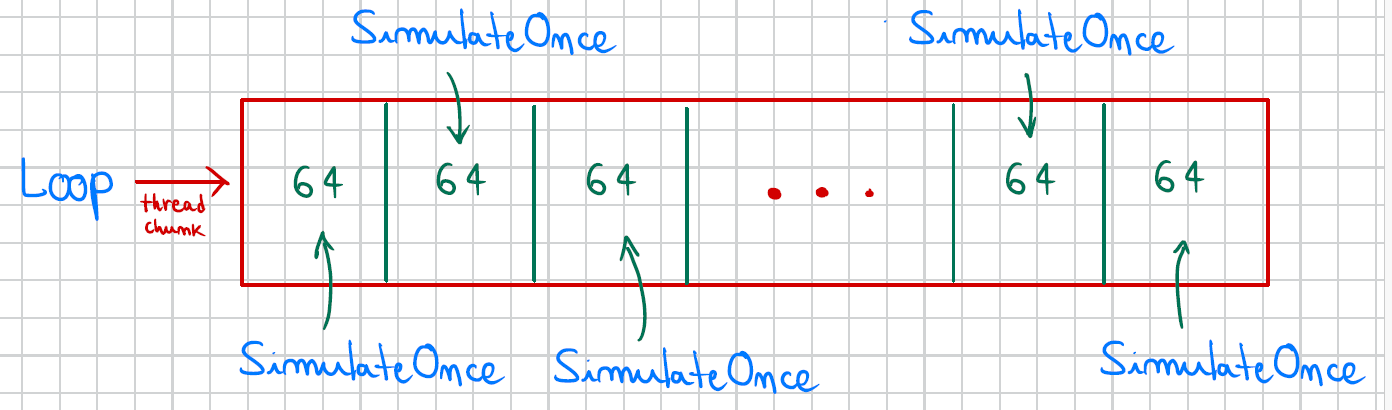 SimulateOnce
SimulateOnce
Loop
thread
chunk
64
64
64
...
64
64
SimulateOnce
SimulateOnce
SimulateOnce